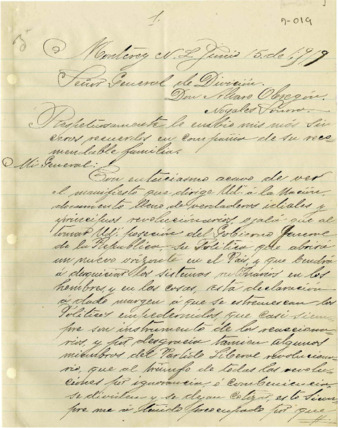 1.
7-019
Monterrey N.L. Junio 15 de 1919
Señor General de División.
Don Alvaro Obregón.
Nogales Sonora.
Respetuosamente le embio mis más sin
ceros recuerdos en compañia de su reco
mendable familia.
Mi General:
Con entusiasmo acavo de ver
el manifiesto que dirige Ud á la Nación,
documento lleno de verdaderos ideales y
principios revolucionarios, ojalá que al
tomar Ud posecion del Gobierno General
de la Republica, su Politica que abrirá
un nuevo orizonte en el Pais, y que tendrá
á desquiciar los sistemas rutinarios en los
hombres y en las cosas, está declaración
á dado margen á que se estremescan los
Políticos empedernidos que casi siem
pre son instrumento de los reacciona
rios, y por desgracia tamien algunos
miembros del Partido Liberal revoluciona
rio, que al triunfo de todas las revolu
ciones por ignorancia ó combeniencia
se dividen y se dejan
pre me á tenido preocupado por que